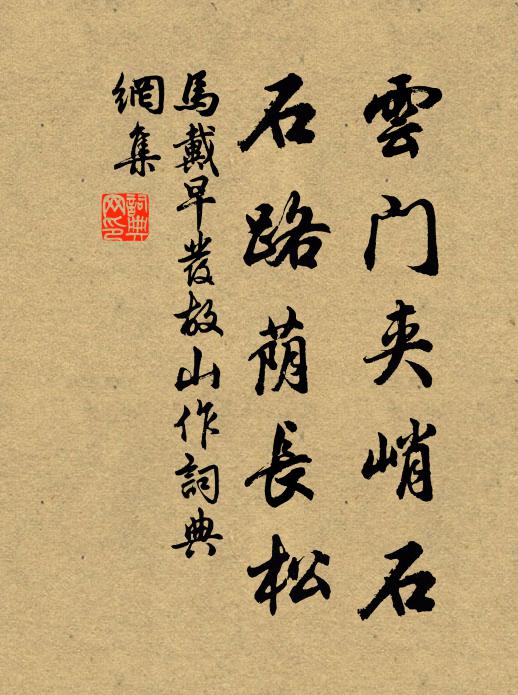 雲门夹峭石
石路荫長松
馬戴早發故山作詞典
網集
詞典网印